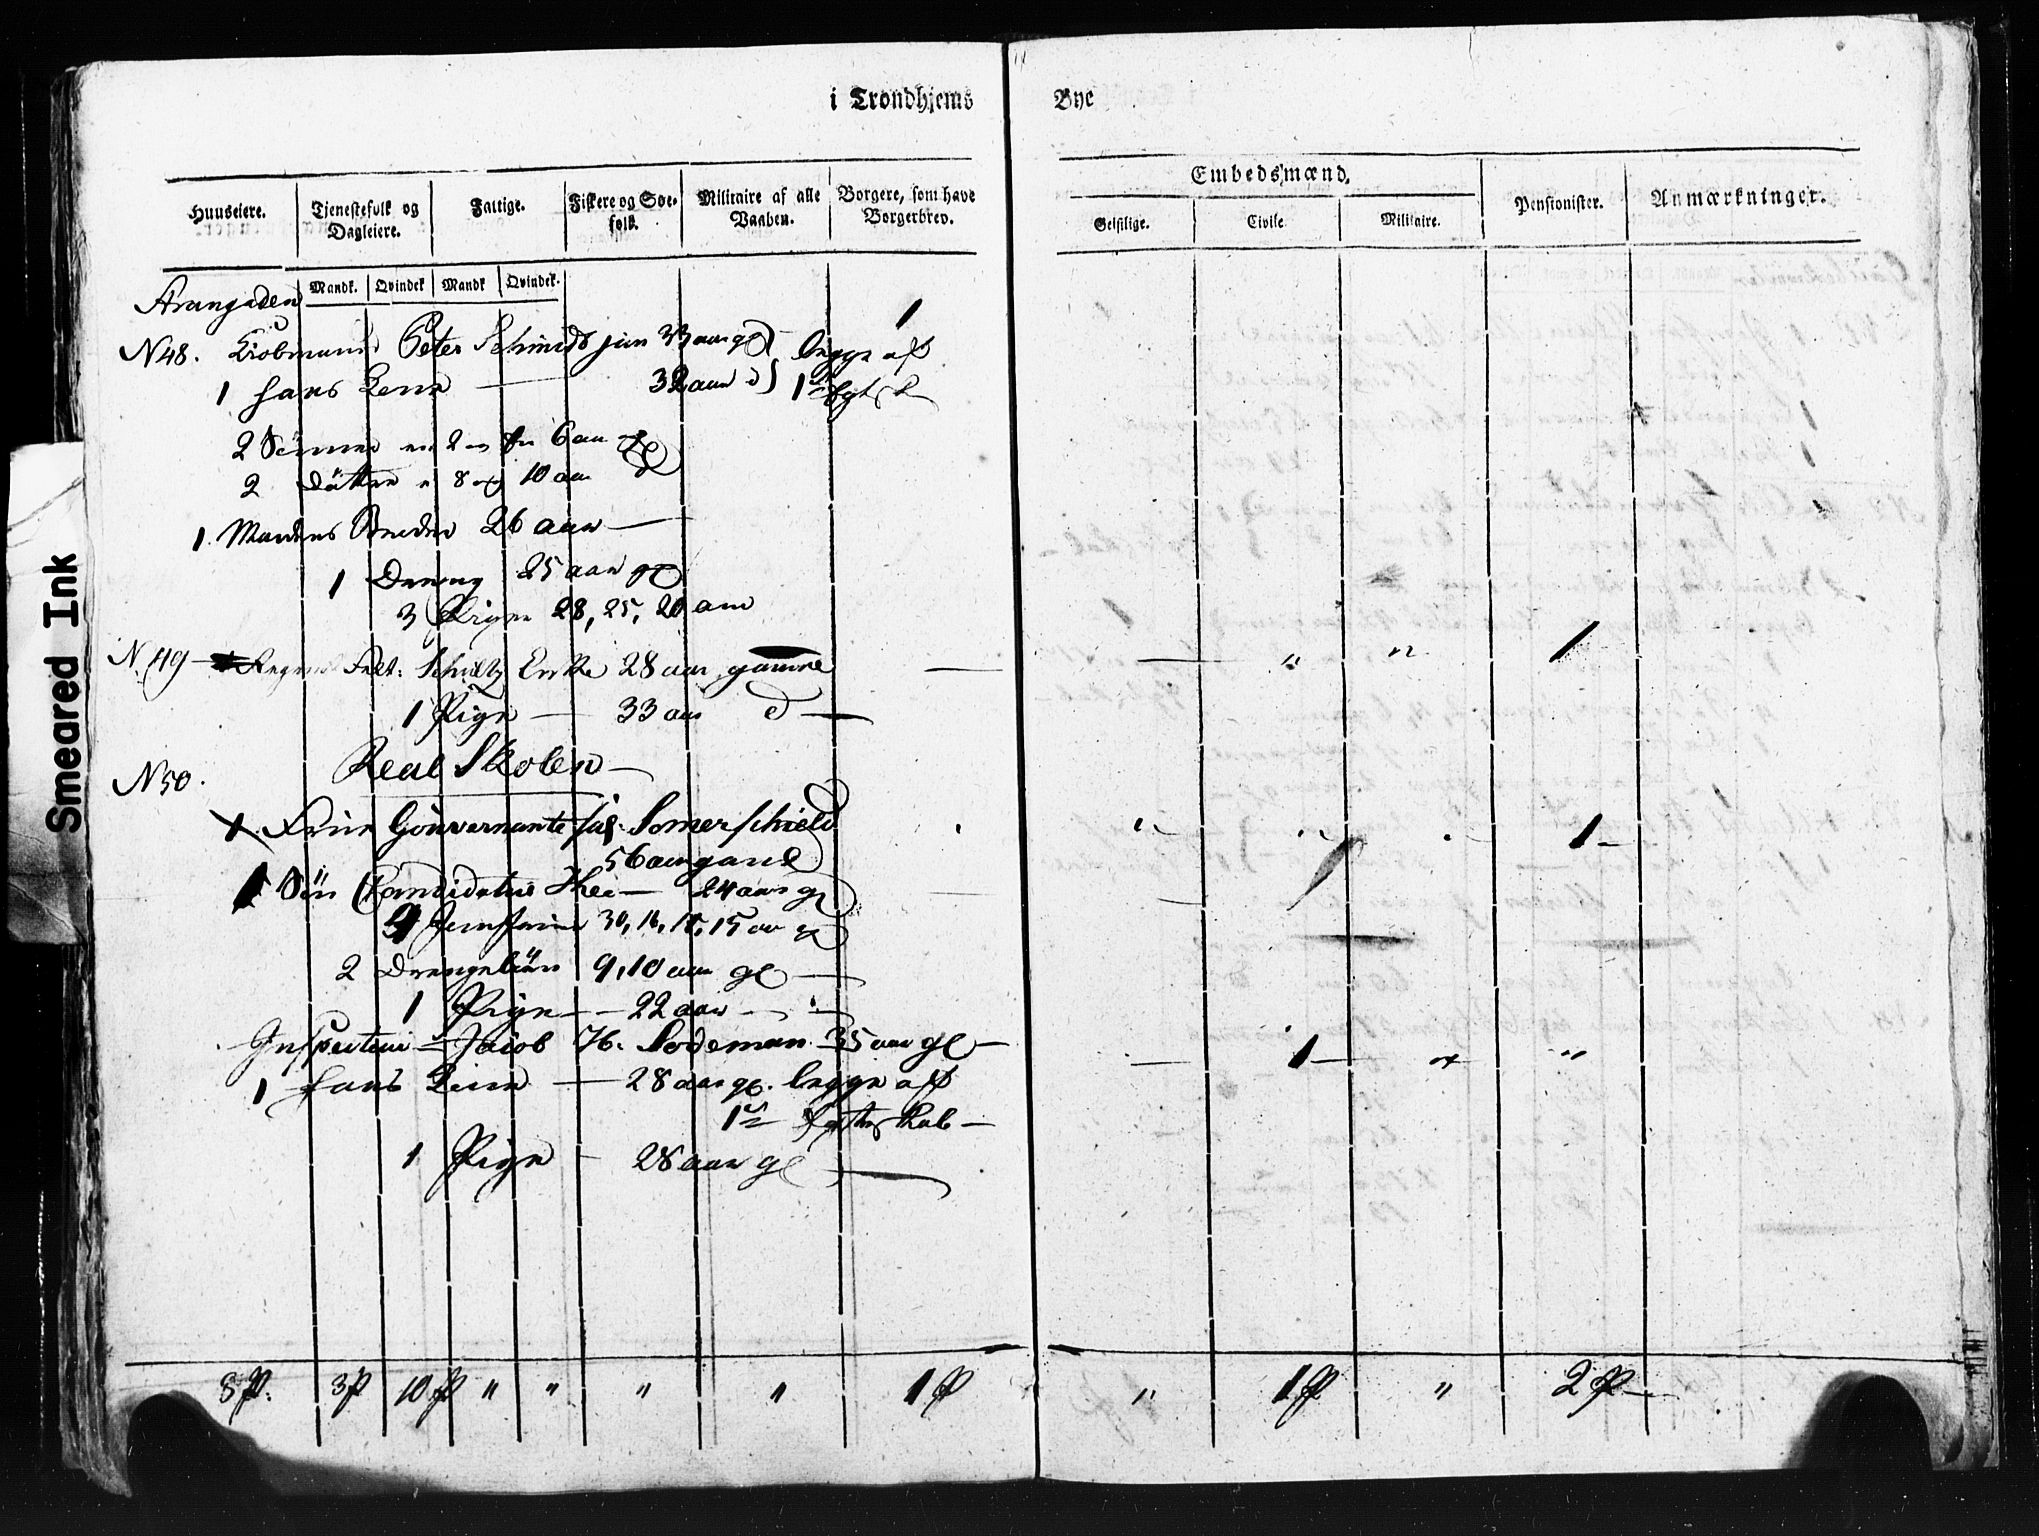 i Trondhjems Bye
Huuseiere. Tjenestefolk og Dagleiere. Fattige. Fiskere og Søe-folk. Militaire af alle Vaaben. Borgere, som have Borgerbrev. Embedsmænd. Geistlige. Civile Militaire. Pensionister. Anmærkninger.
Mandk. Qvindek Mandk Qvindek.
Strangaden
1
N48. Kiøbmand Peter Schmidt jun 33 aar gl begge af
1 hans Kone — 32 aar d 1ste Egtsk
2 Sönner en 2 og en 6 aar gl
2 Döttre 8 og 10 aar
1 Mandens Broder 26 aar —
1 Dreng 25 aar gl
3 Piger 28, 25, 20 aar
N. 49 — Schultz Enke 28 aar gamle — — " " 1
1 Pige — 33 aar d —
N50. Real Skolen —
1. Frue Gouvernante sal. Somerschield " " 1 —
56 aar gaml
1 Sön Candidatus — 24 aar gl
4 Jomfruer 30, 16, 17, 15 aar gl
2 Drengebörn 9, 10 aar gl —
1 Pige — 22 aar — " —
Inspecteur — Jacob H. Sodeman 35 aar gl — — 1 — " "
1 hans Kone — 28 aar gl. begge af
1ste Egteskab —
1 Pige — 28 aar gl —
8 P. 3 P 10 P " " " " 1 P " 1 P " 2 P —
Smeared Ink